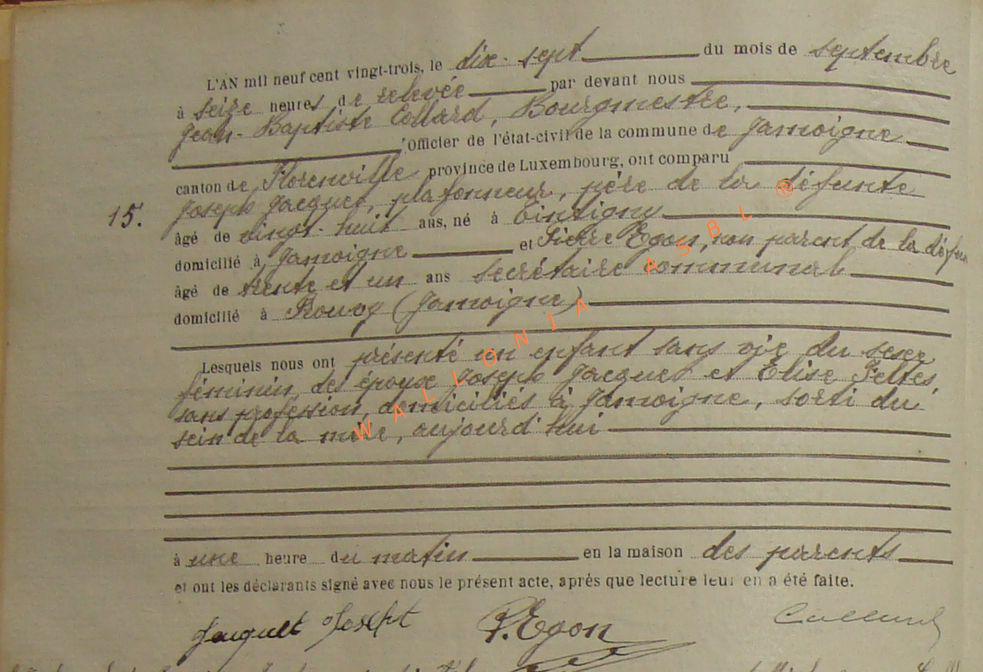 L'AN mil neuf cent vingt-trois, le dix-sept du mois de septembre
à seize heures de relevée par devant nous
Jean-Baptiste Collard, Bourgmestre,
officier de l'état-civil de la commune de Jamoigne
canton de Florenville province de Luxembourg, ont comparu
15. Joseph Jacquet, plafonneur, père de la défunte
âgé de vingt-huit ans, né à Tintigny
domicilié à Jamoigne et Pierre Egon, non parent de la défunte
âgé de trente et un ans secrétaire communal
domicilié à Prouvy (Jamoigne)
Lesquels nous ont présenté un enfant sans vie du sexe
féminin, des époux Joseph Jacquet et Elise Feltes,
sans profession, domiciliés à Jamoigne, sorti du
sein de la mère, aujourd'hui
à une heure du matin en la maison des parents
et ont les déclarants signé avec nous le présent acte, après que lecture leur en a été faite.
Jacquet Joseph P. Egon Collard
WALLONIA ASBL ®